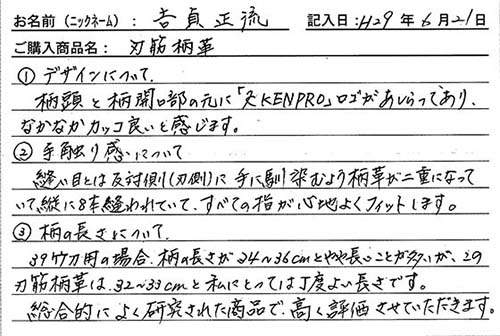 お名前(ニックネーム): 吉貞正流 記入日:H29年6月21日
ご購入商品名: 刃筋柄革
① デザインについて.
柄頭と柄開口部の元に「天KENPRO」ロゴがあしらってあり、
なかなかカッコ良いと感じます。
② 手触り感について
縫い目とは反対側(刃側)に手に馴染むよう柄革が二重になって
いて、縦に8本縫われていて、すべての指が心地よくフィットします。
③ 柄の長さについて.
39竹刀用の場合、柄の長さが34〜36cmとやや長いことが多いが、この
刃筋柄革は、32〜33cmと私にとっては丁度よい長さです。
総合的によく研究された商品で、高く評価させていただきます。